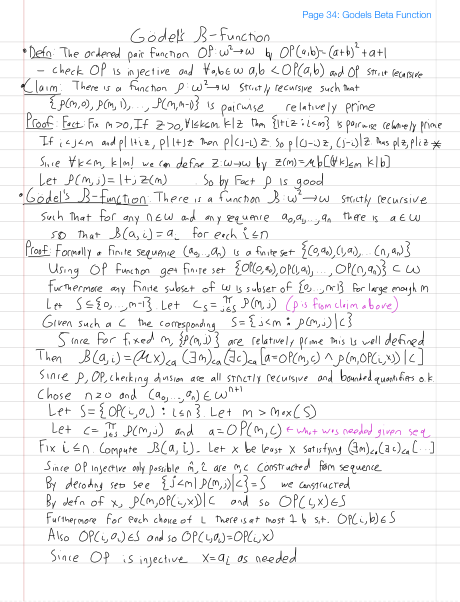 Page 34: Godels Beta Function
Gödel's β-function
• Defn: The ordered pair function OP: ω²→ω by OP(a,b)=(a+b)²+a+1
– check OP is injective and ∀a,b∈ω a,b < OP(a,b) and OP strict recursive
• Claim: There is a function ρ: ω²→ω strictly recursive such that
{ρ(m,0), ρ(m,1), ..., ρ(m,m-1)} is pairwise relatively prime
Proof: Fact: Fix m>0, If z>0, ∀1≤k≤m k|z then {1+iz : i<m} is pairwise relatively prime
If i<j<m and p|1+iz, p|1+jz then p|(j-i)z So p|(j-i), (j-i)|z thus p|z, p|1
Since ∀k<m, k|m! we can define z:ω→ω by z(m)=μb[(∀k)≤m k|b]
Let ρ(m,j)=1+jz(m) So by Fact ρ is good
• Godel's β-function: There is a function β: ω²→ω strictly recursive
such that for any n∈ω and any sequence a₀,a₁,...,aₙ there is a∈ω
so that β(a,i)=aᵢ for each i≤n
Proof: Formally a finite sequence (a₀,...,aₙ) is a finite set {(0,a₀),(1,a₁),...,(n,aₙ)}
Using OP function get finite set {OP(0,a₀),OP(1,a₁),...,OP(n,aₙ)} ⊂ ω
Furthermore any finite subset of ω is subset of {0,...,m-1} for large enough m
Let S⊆{0,...,m-1} Let Cs=π j∈S ρ(m,j) (ρ is from claim above)
Given such a C the corresponding S={j<m : ρ(m,j)|C}
Since for fixed m, {ρ(m,j)} are relatively prime this is well defined
Then β(a,i)=(μx)<a (∃m)<a(∃c)<a[a=OP(m,c) ∧ ρ(m,OP(i,x))|c]
Since ρ, OP, checking division are all strictly recursive and bounded quantifiers ok
Chose n≥0 and (a₀,...,aₙ)∈ωⁿ⁺¹
Let S={OP(i,aᵢ) : i≤n} Let m>max(S)
Let c=π j∈S ρ(m,j) and a=OP(m,c) ← what was needed given seq
Fix i≤n. Compute β(a,i). Let x be least x satisfying (∃m)<a(∃c)<a[...]
Since OP injective only possible m̂, ĉ are m,c constructed from sequence
By decoding sets see {j<m|ρ(m,j)|c}=S we constructed
By defn of x, ρ(m,OP(i,x))|c and so OP(i,x)∈S
Furthermore for each choice of i there is at most 1 b s.t. OP(i,b)∈S
Also OP(i,aᵢ)∈S and so OP(i,aᵢ)=OP(i,x)
Since OP is injective x=aᵢ as needed